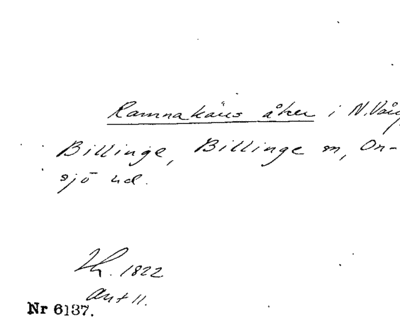 Ramnakärs åker i N. Vång
Billinge, Billinge sn, On-
sjö hd.
Th. 1822
ant 11.
Nr 6137.